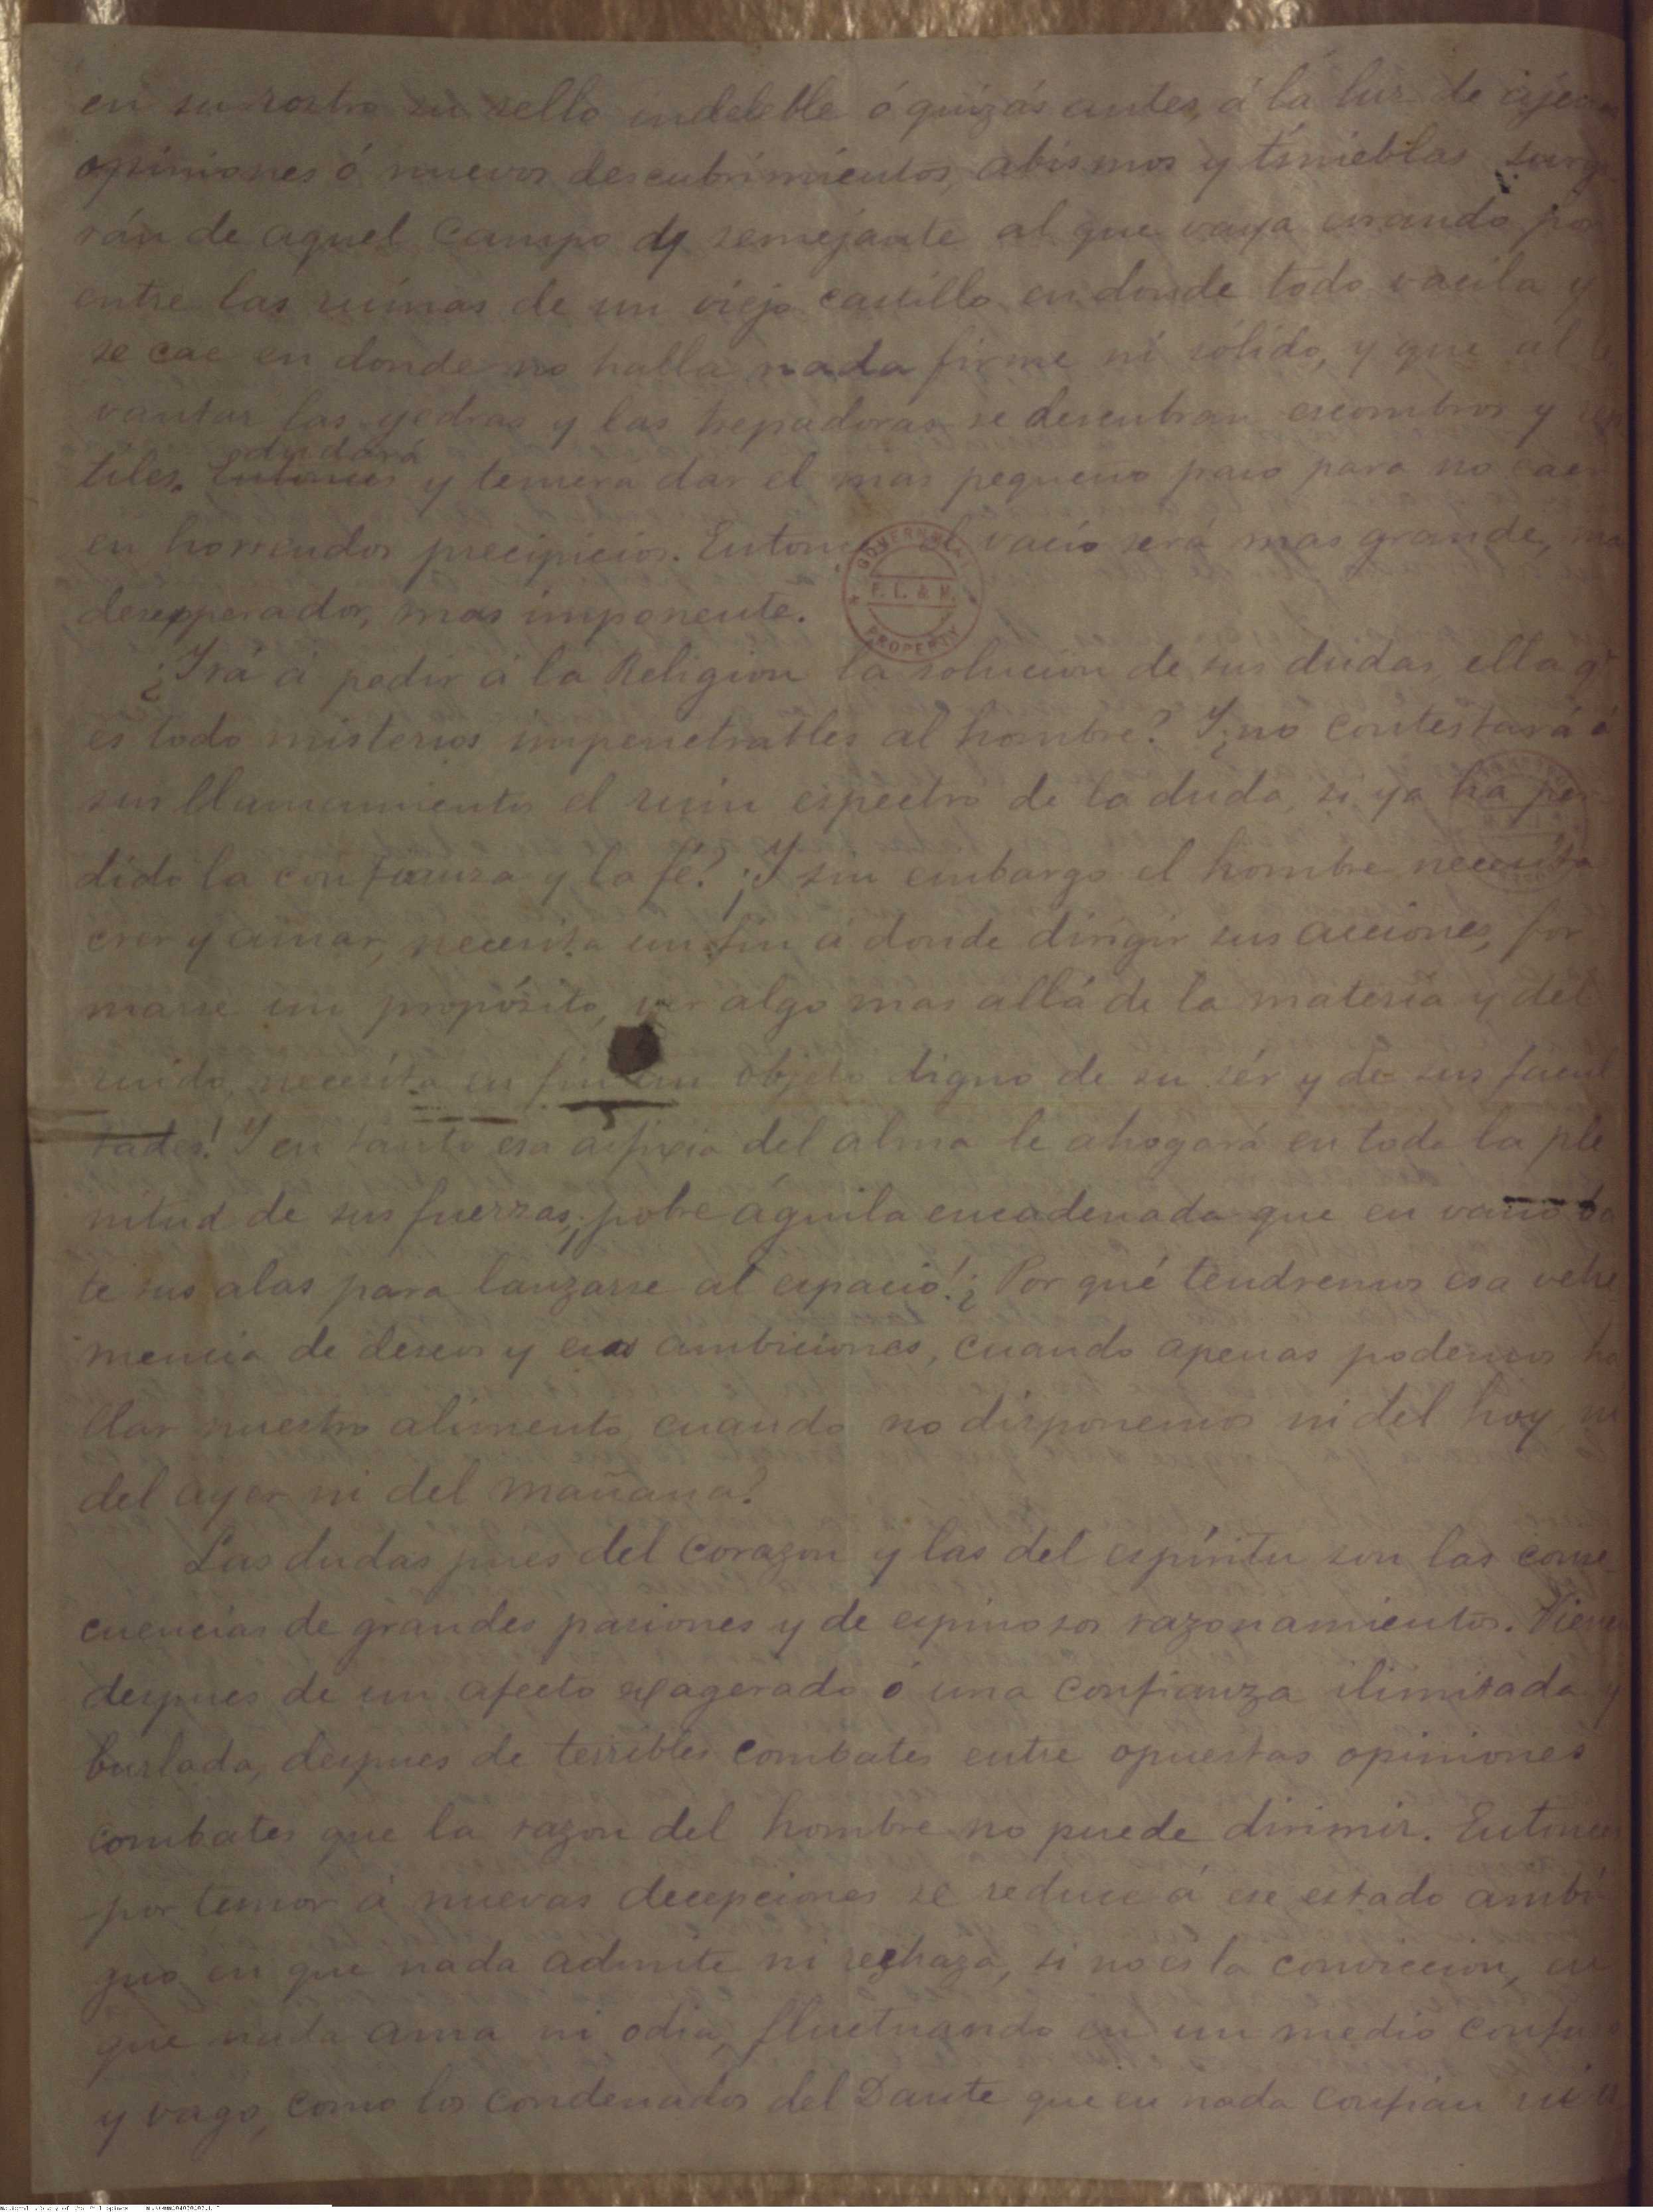 en su rostro su sello indeleble ó quizás antes, á la luz de ajenas
opiniones ó nuevos descubrimientos, abismos y tinieblas surgi
rán de aquel campo y semejante al que vaya errando por
entre las ruinas de un viejo castillo en donde todo vacila y
se cae en donde no halla nada firme ni sólido, y que al le
vantar las yedras y las trepadoras se descubran escombros y rep
tiles. Entonces dudará y temera dar el mas pequeño paso para no caer
en horrendos precipicios. Entonces el vacío será mas grande, mas
desesperador, mas imponente.
GOVERNMENT
F. L. & M.
PROPERTY
¿Irá á pedir á la Religion la solucion de sus dudas, ella q.e
es todo misterios impenetrables al hombre? Y ¿no contestará á
sus llamamientos el ruin espectro de la duda, si ya ha per
dido la confianza y la fé? ¡Y sin embargo el hombre necesita
creer y amar, necesita un fin á donde dirigir sus acciones, for
marse un propósito, ver algo mas allá de la materia y del
ruido, necesita en fin un objeto digno de su sér y de sus facul
tades! Y en tanto esa asfixia del alma le ahogará en toda la ple
nitud de sus fuerzas, ¡pobre águila encadenada que en vano ba
te sus alas para lanzarse al espacio! ¿Por qué tendremos esa vehe
mencia de deseos y esas ambiciones, cuando apenas podemos ha
llar nuestro alimento, cuando no disponemos ni del hoy, ni
del ayer ni del mañana?
Las dudas pues del corazon y las del espíritu son las conse
cuencias de grandes pasiones y de espinosos razonamientos. Vienen
despues de un afecto exagerado ó una confianza ilimitada y
burlada, despues de terribles combates entre opuestas opiniones
combates que la razon del hombre no puede dirimir. Entonces
por temor á nuevas decepciones se reduce á ese estado ambí
guo en que nada admite ni rechaza, si no es la conviccion, en
que nada ama ni odia, fluctuando en un medio confuso
y vago, como los condenados del Dante que en nada confian ni